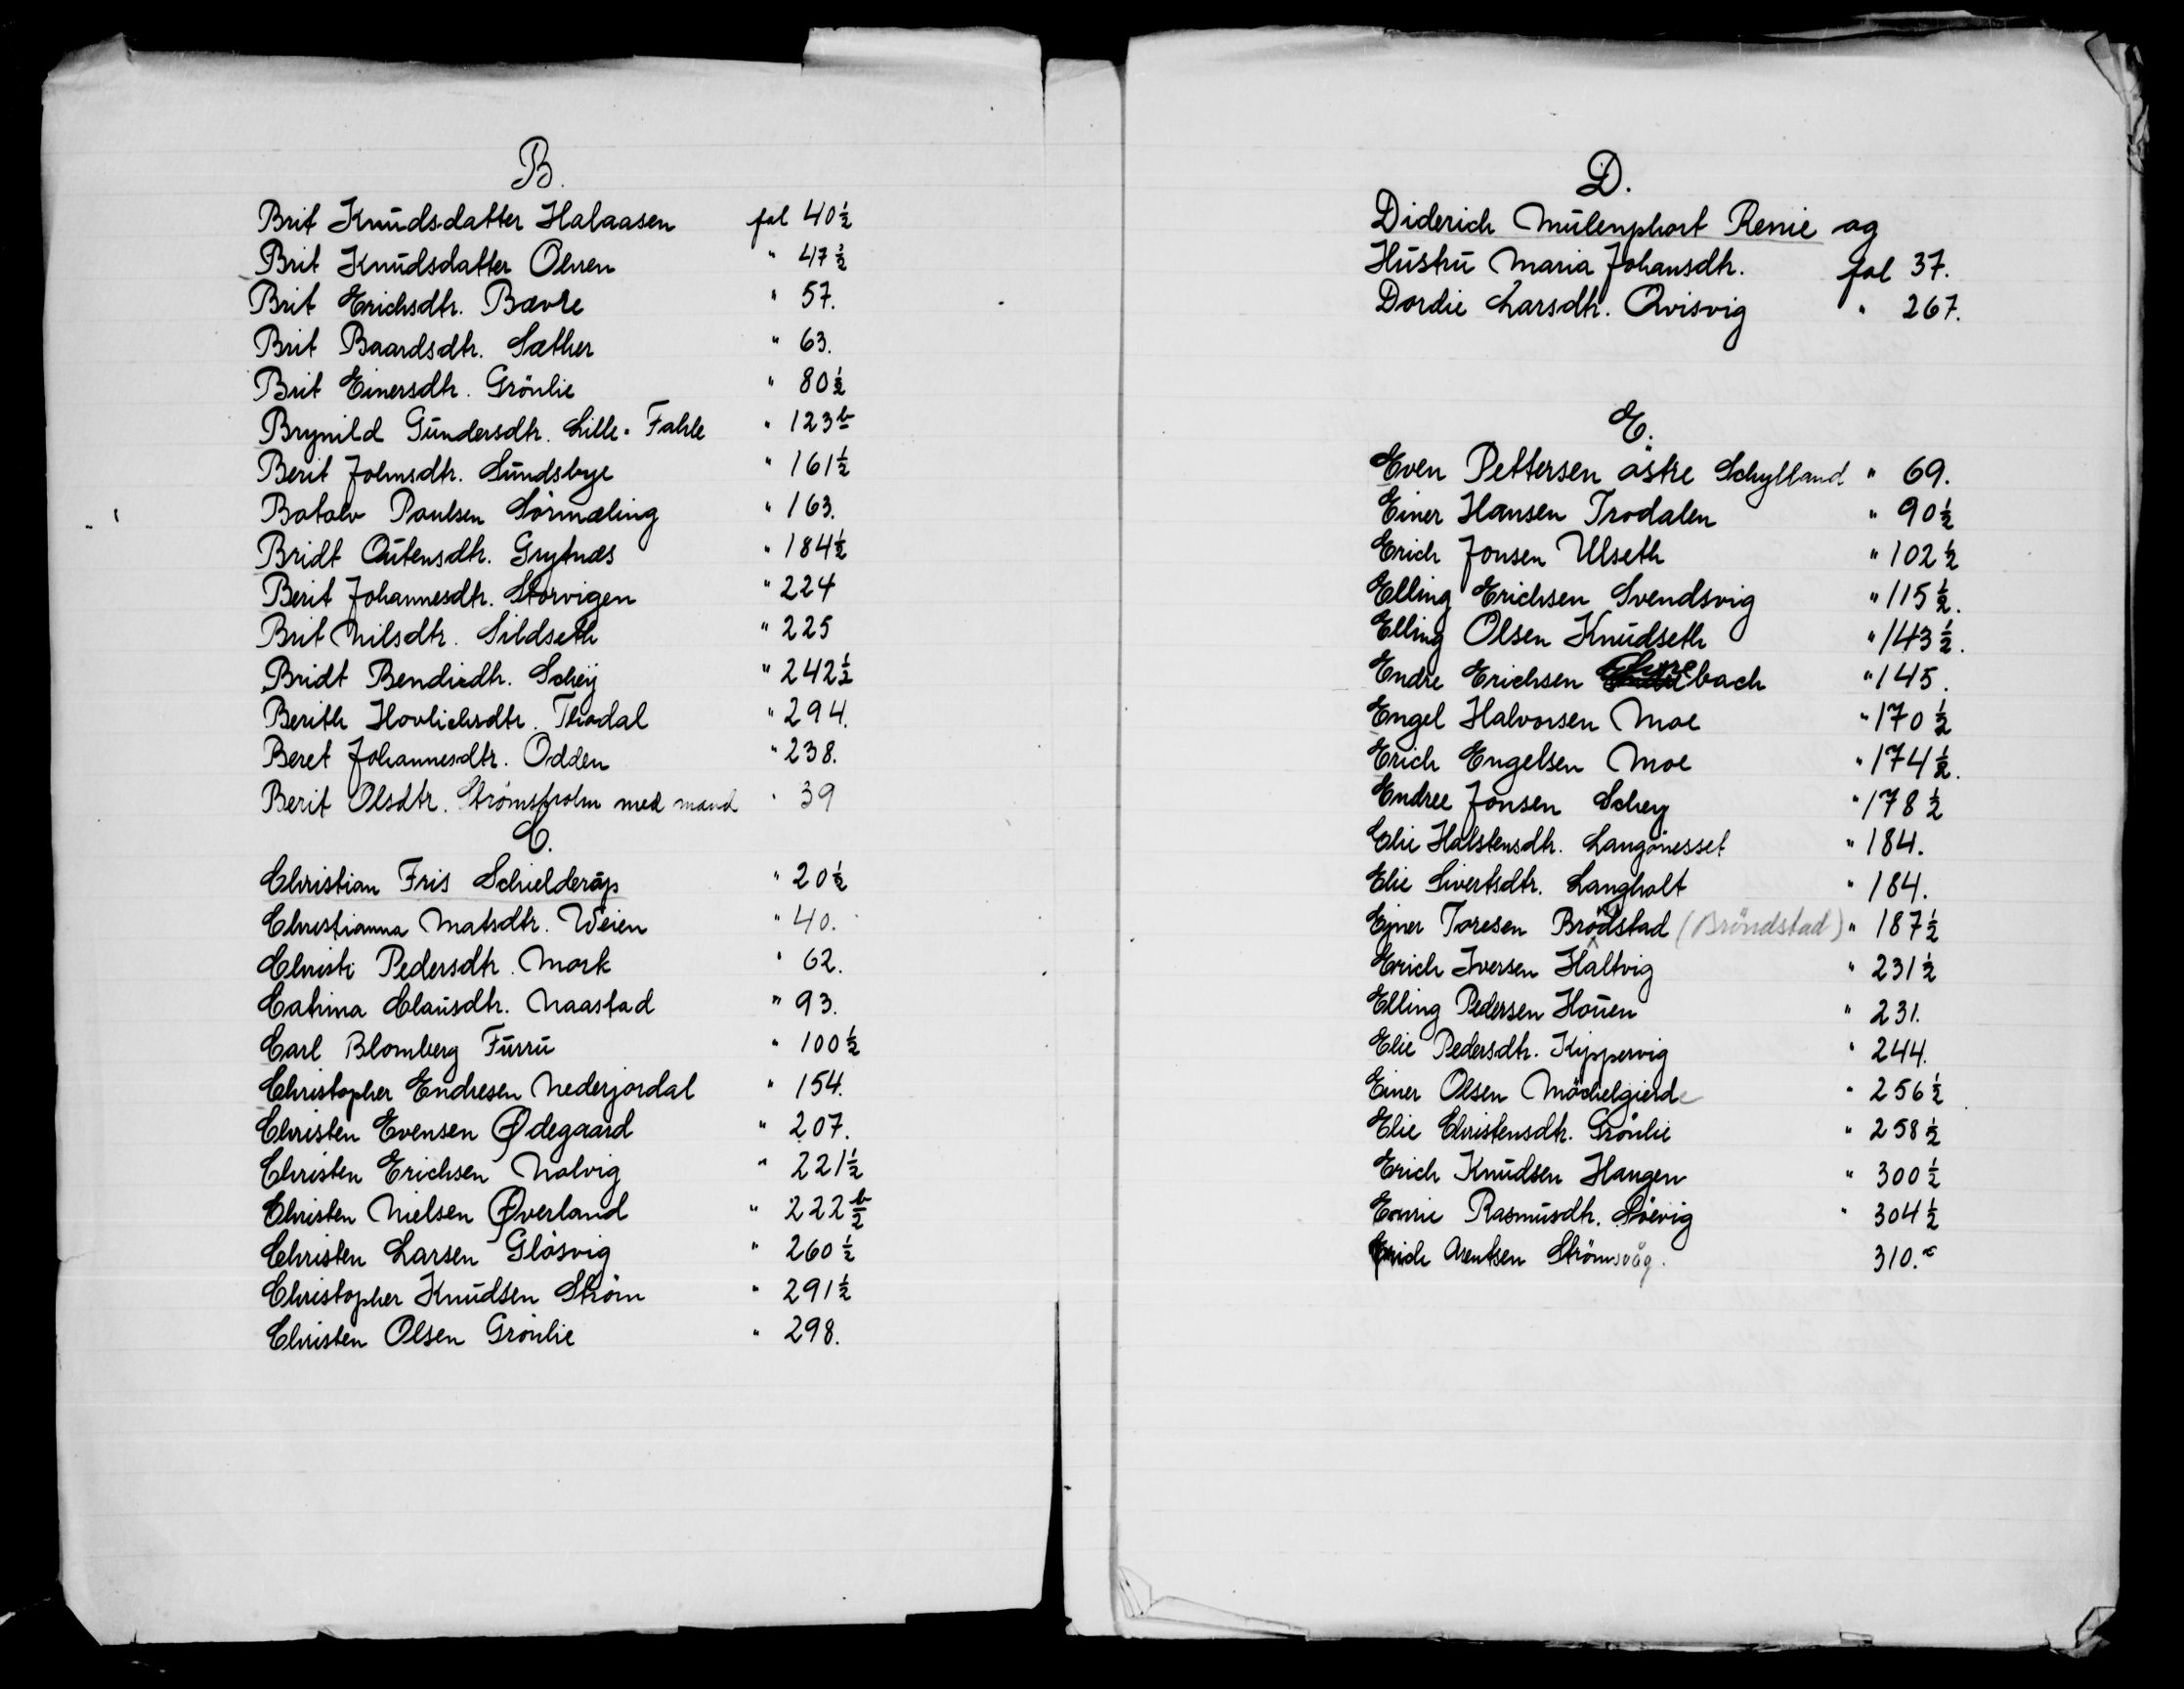 B.
Brit Knudsdatter Halaasen fol 40½
Brit Knudsdatter Olnen " 47½
Brit Erichsdtr. Bævre " 57.
Brit Baardsdtr. Sæther " 63.
Brit Einersdtr. Grönlie " 80½
Brynild Gundersdtr. Lille-Fahle " 123 b
Berit Johnsdtr. Sundsbye " 161½
Botolv Paulsen Sörmæling " 163.
Bridt Outensdtr. Grytnæs " 184½
Berit Johannesdtr. Storvigen " 224
Brit Nilsdtr. Sildseth " 225
Bridt Bendixdtr. Scheij " 242½
Berith Hovlichsdtr. Thodal " 294.
Beret Johannesdtr. Odden " 238.
Berit Olsdtr. Strömsholm med mand " 39
C.
Christian Fris Schielderøp " 20½
Christianna Matsdtr. Weien " 40.
Christi Pedersdtr. Mork " 62.
Catrina Clausdtr. Naastad " 93.
Carl Blomberg Furru " 100½
Christopher Endresen Nederjordal " 154.
Christen Evensen Ødegaard " 207.
Christen Erichsen Nalvig " 221½
Christen Nielsen Øverland " 222 b/2
Christen Larsen Glösvig " 260½
Christopher Knudsen Ström " 291½
Christen Olsen Grönlie " 298.
D.
Diderich Mulenphort Renie og
Hustru Maria Johansdtr. fol 37.
Dordie Larsdtr. Qvisvig " 267.
E.
Even Pettersen östre Schylland " 69.
Einer Hansen Trodalen " 90½
Erich Jonsen Ulseth " 102½
Elling Erichsen Svendsvig " 115½.
Elling Olsen Knudseth " 143½.
Endre Erichsen bach " 145.
Engel Halvorsen Moe " 170½
Erich Engelsen Moe " 174½.
Endree Jonsen Schey " 178½
Elie Halstensdtr. Langönesset " 184.
Elie Sivertsdtr. Langholt " 184.
Ejner Toresen Brödstad (Bröndstad) " 187½
Erich Iversen Haltvig " 231½
Elling Pedersen Houen " 231.
Elie Pedersdtr. Kippervig " 244.
Einer Olsen Möchelgierde " 256½
Elie Christensdtr. Grönlie " 258½
Erich Knudsen Hangen " 300½
Rasmusdtr. Söevig " 304½
Erich Arentsen Strömsvåg. 310.